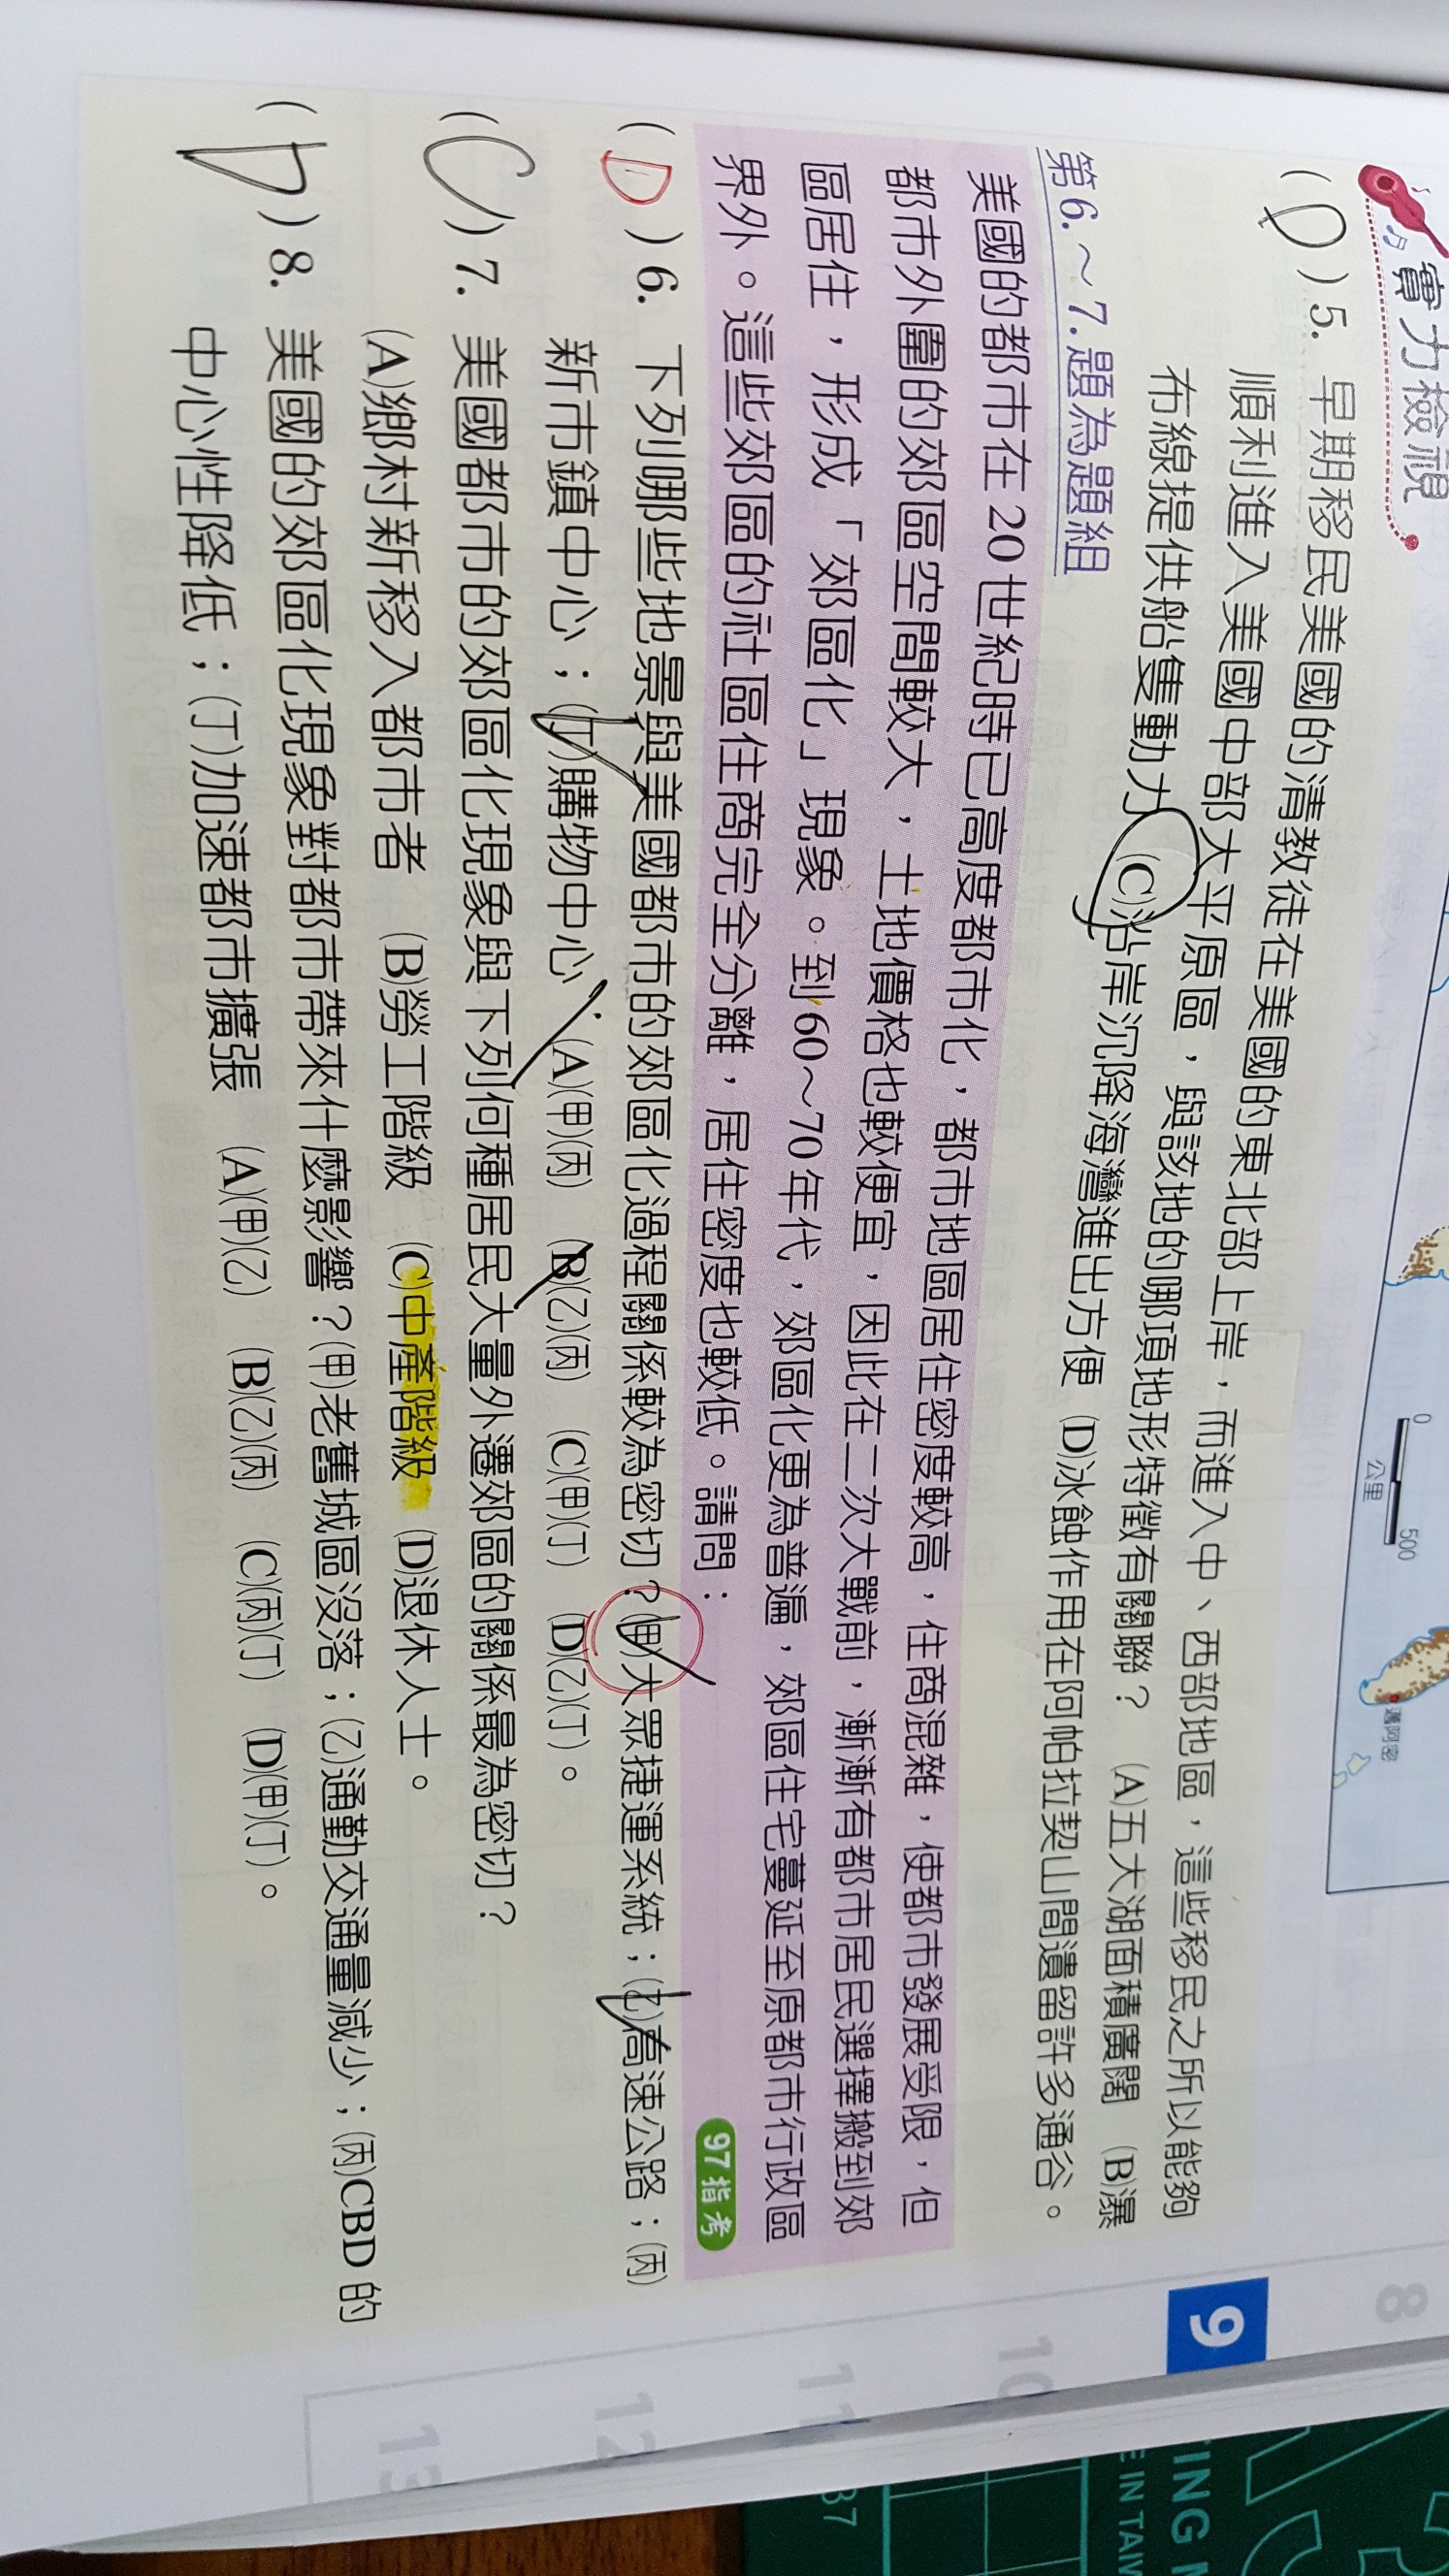 實力檢視
(D)5. 早期移民美國的清教徒在美國的東北部上岸，而進入中、西部地區，這些移民之所以能夠
順利進入美國中部大平原區，與該地的哪項地形特徵有關聯？ (A)五大湖面積廣闊 (B)瀑
布線提供船隻動力 (C)沿岸沉降海灣進出方便 (D)冰蝕作用在阿帕拉契山間遺留許多通谷。
第6.～7.題為題組
美國的都市在20世紀時已高度都市化，都市地區居住密度較高，住商混雜，使都市發展受限，但
都市外圍的郊區空間較大，土地價格也較便宜，因此在二次大戰前，漸漸有都市居民選擇搬到郊
區居住，形成「郊區化」現象。到60～70年代，郊區化更為普遍，郊區住宅蔓延至原都市行政區
界外。這些郊區的社區住商完全分離，居住密度也較低。請問：
97指考
(D)6. 下列哪些地景與美國都市的郊區化過程關係較為密切？(甲)大眾捷運系統；(乙)高速公路；(丙)
新市鎮中心；(丁)購物中心 (A)(甲)(丙) (B)(乙)(丙) (C)(甲)(丁) (D)(乙)(丁)。
(C)7. 美國都市的郊區化現象與下列何種居民大量外遷郊區的關係最為密切？
(A)鄉村新移入都市者 (B)勞工階級 (C)中產階級 (D)退休人士。
(D)8. 美國的郊區化現象對都市帶來什麼影響？(甲)老舊城區沒落；(乙)通勤交通量減少；(丙)CBD的
中心性降低；(丁)加速都市擴張 (A)(甲)(乙) (B)(乙)(丙) (C)(丙)(丁) (D)(甲)(丁)。
0 500
公里
邁阿密
8
9
10
11
12
13